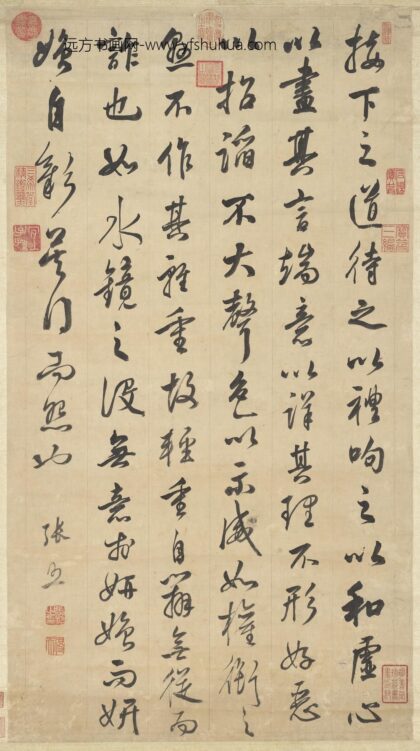 远方书画网-www.yfshuhua.com
接下之道待之以禮呴之以和虛心
以盡其言端意以詳其理不形好惡
以招諂不大聲色以示威如權衡之
懸不作其輕重故輕重自辨無從而
詐也如水鏡之設無意於妍媸而妍
媸自彰莫得而怨也
張照